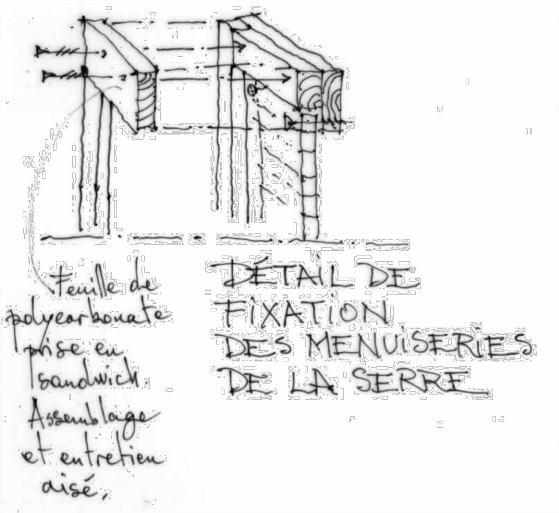 Feuille de
polycarbonate
prise en
sandwich.
Assemblage
et entretien
aisé.
DÉTAIL DE
FIXATION
DES MENUISERIES
DE LA SERRE